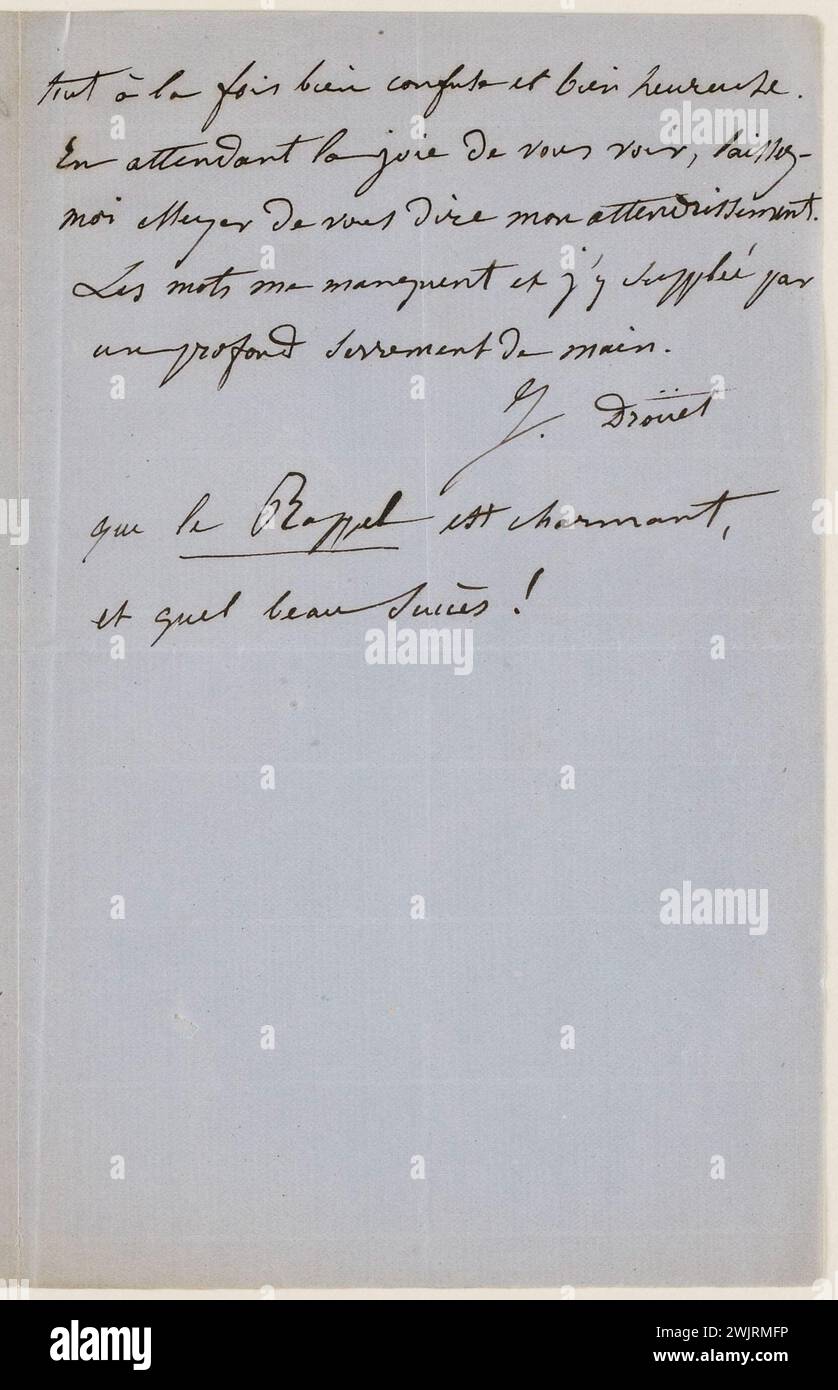 tout à la fois bien confuse et bien heureuse.
En attendant la joie de vous voir, laissez-
moi essayer de vous dire mon attendrissement.
Les mots me manquent et j'y supplée par
un profond serrement de main.
J. Droüet
que le Rappel est charmant,
et quel beau succès !
alamy
alamy
Image ID: 2WJRMFP
www.alamy.com